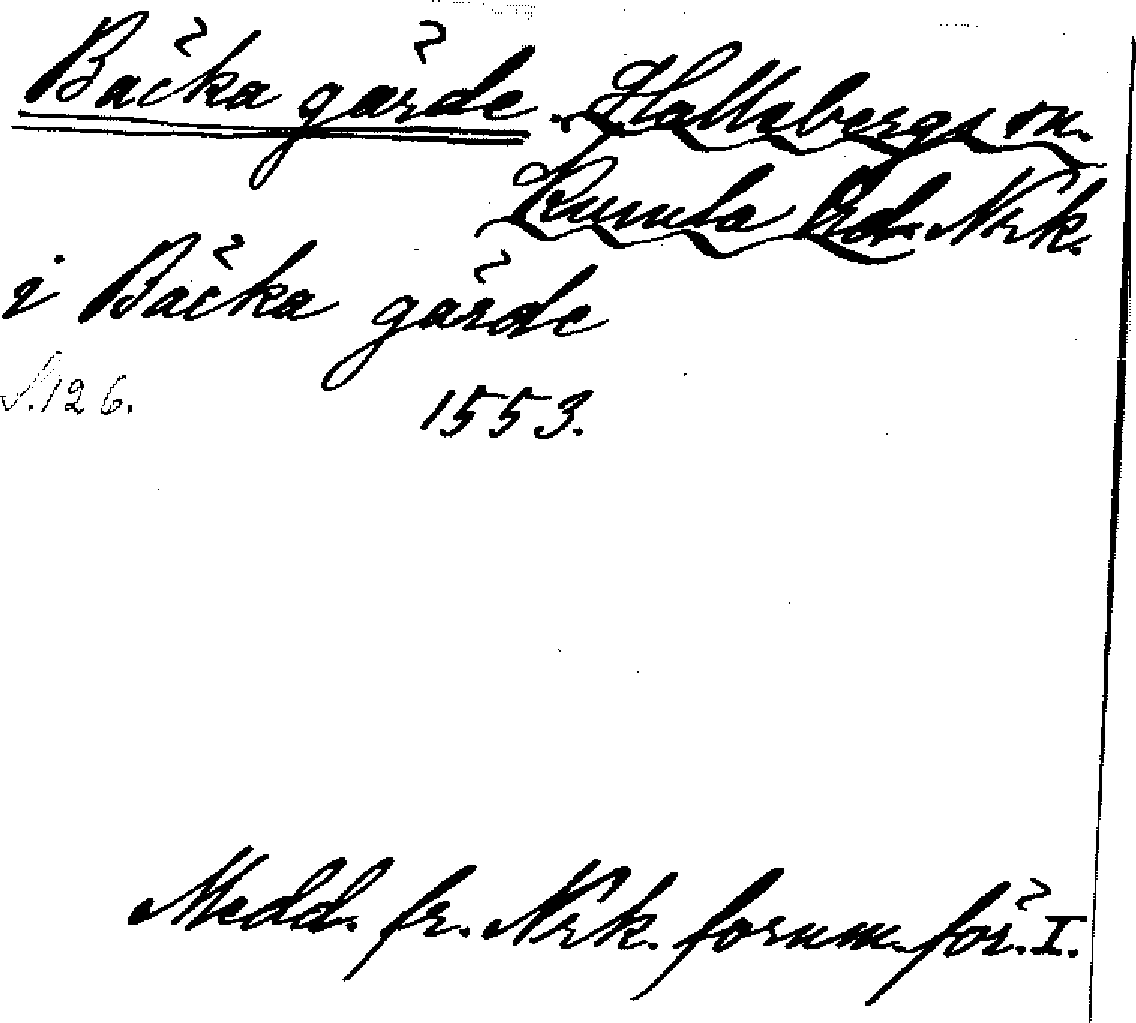 Bäcka gärde. Hallsbergs sn.
Kumla hd. Nrk.
i Bäcka gärde
S. 126.
1553.
Medd. fr. Nrk. fornm. för. I.